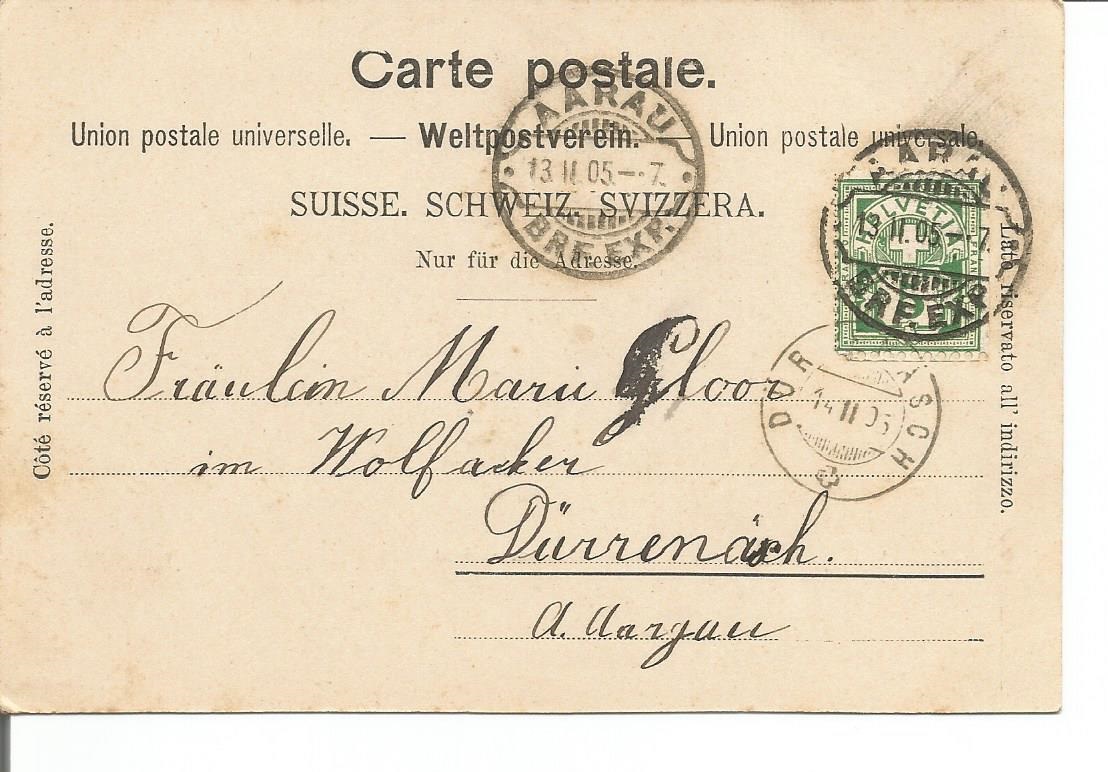 Carte postale.
Union postale universelle. — Weltpostverein. — Union postale universale.
SUISSE. SCHWEIZ. SVIZZERA.
Nur für die Adresse.
Côté réservé à l'adresse.
Lato riservato all' indirizzo.
AARAU
13. II. 05. — 7.
BRF. EXP.
AARAU
13. II. 05. — 7.
BRF. EXP.
HELVETIA
FRANCO
5
DÜR ASCH
14 II 05
Fräulein Marie Gloor
im Wolfacker
Dürrenäsch.
Aargau